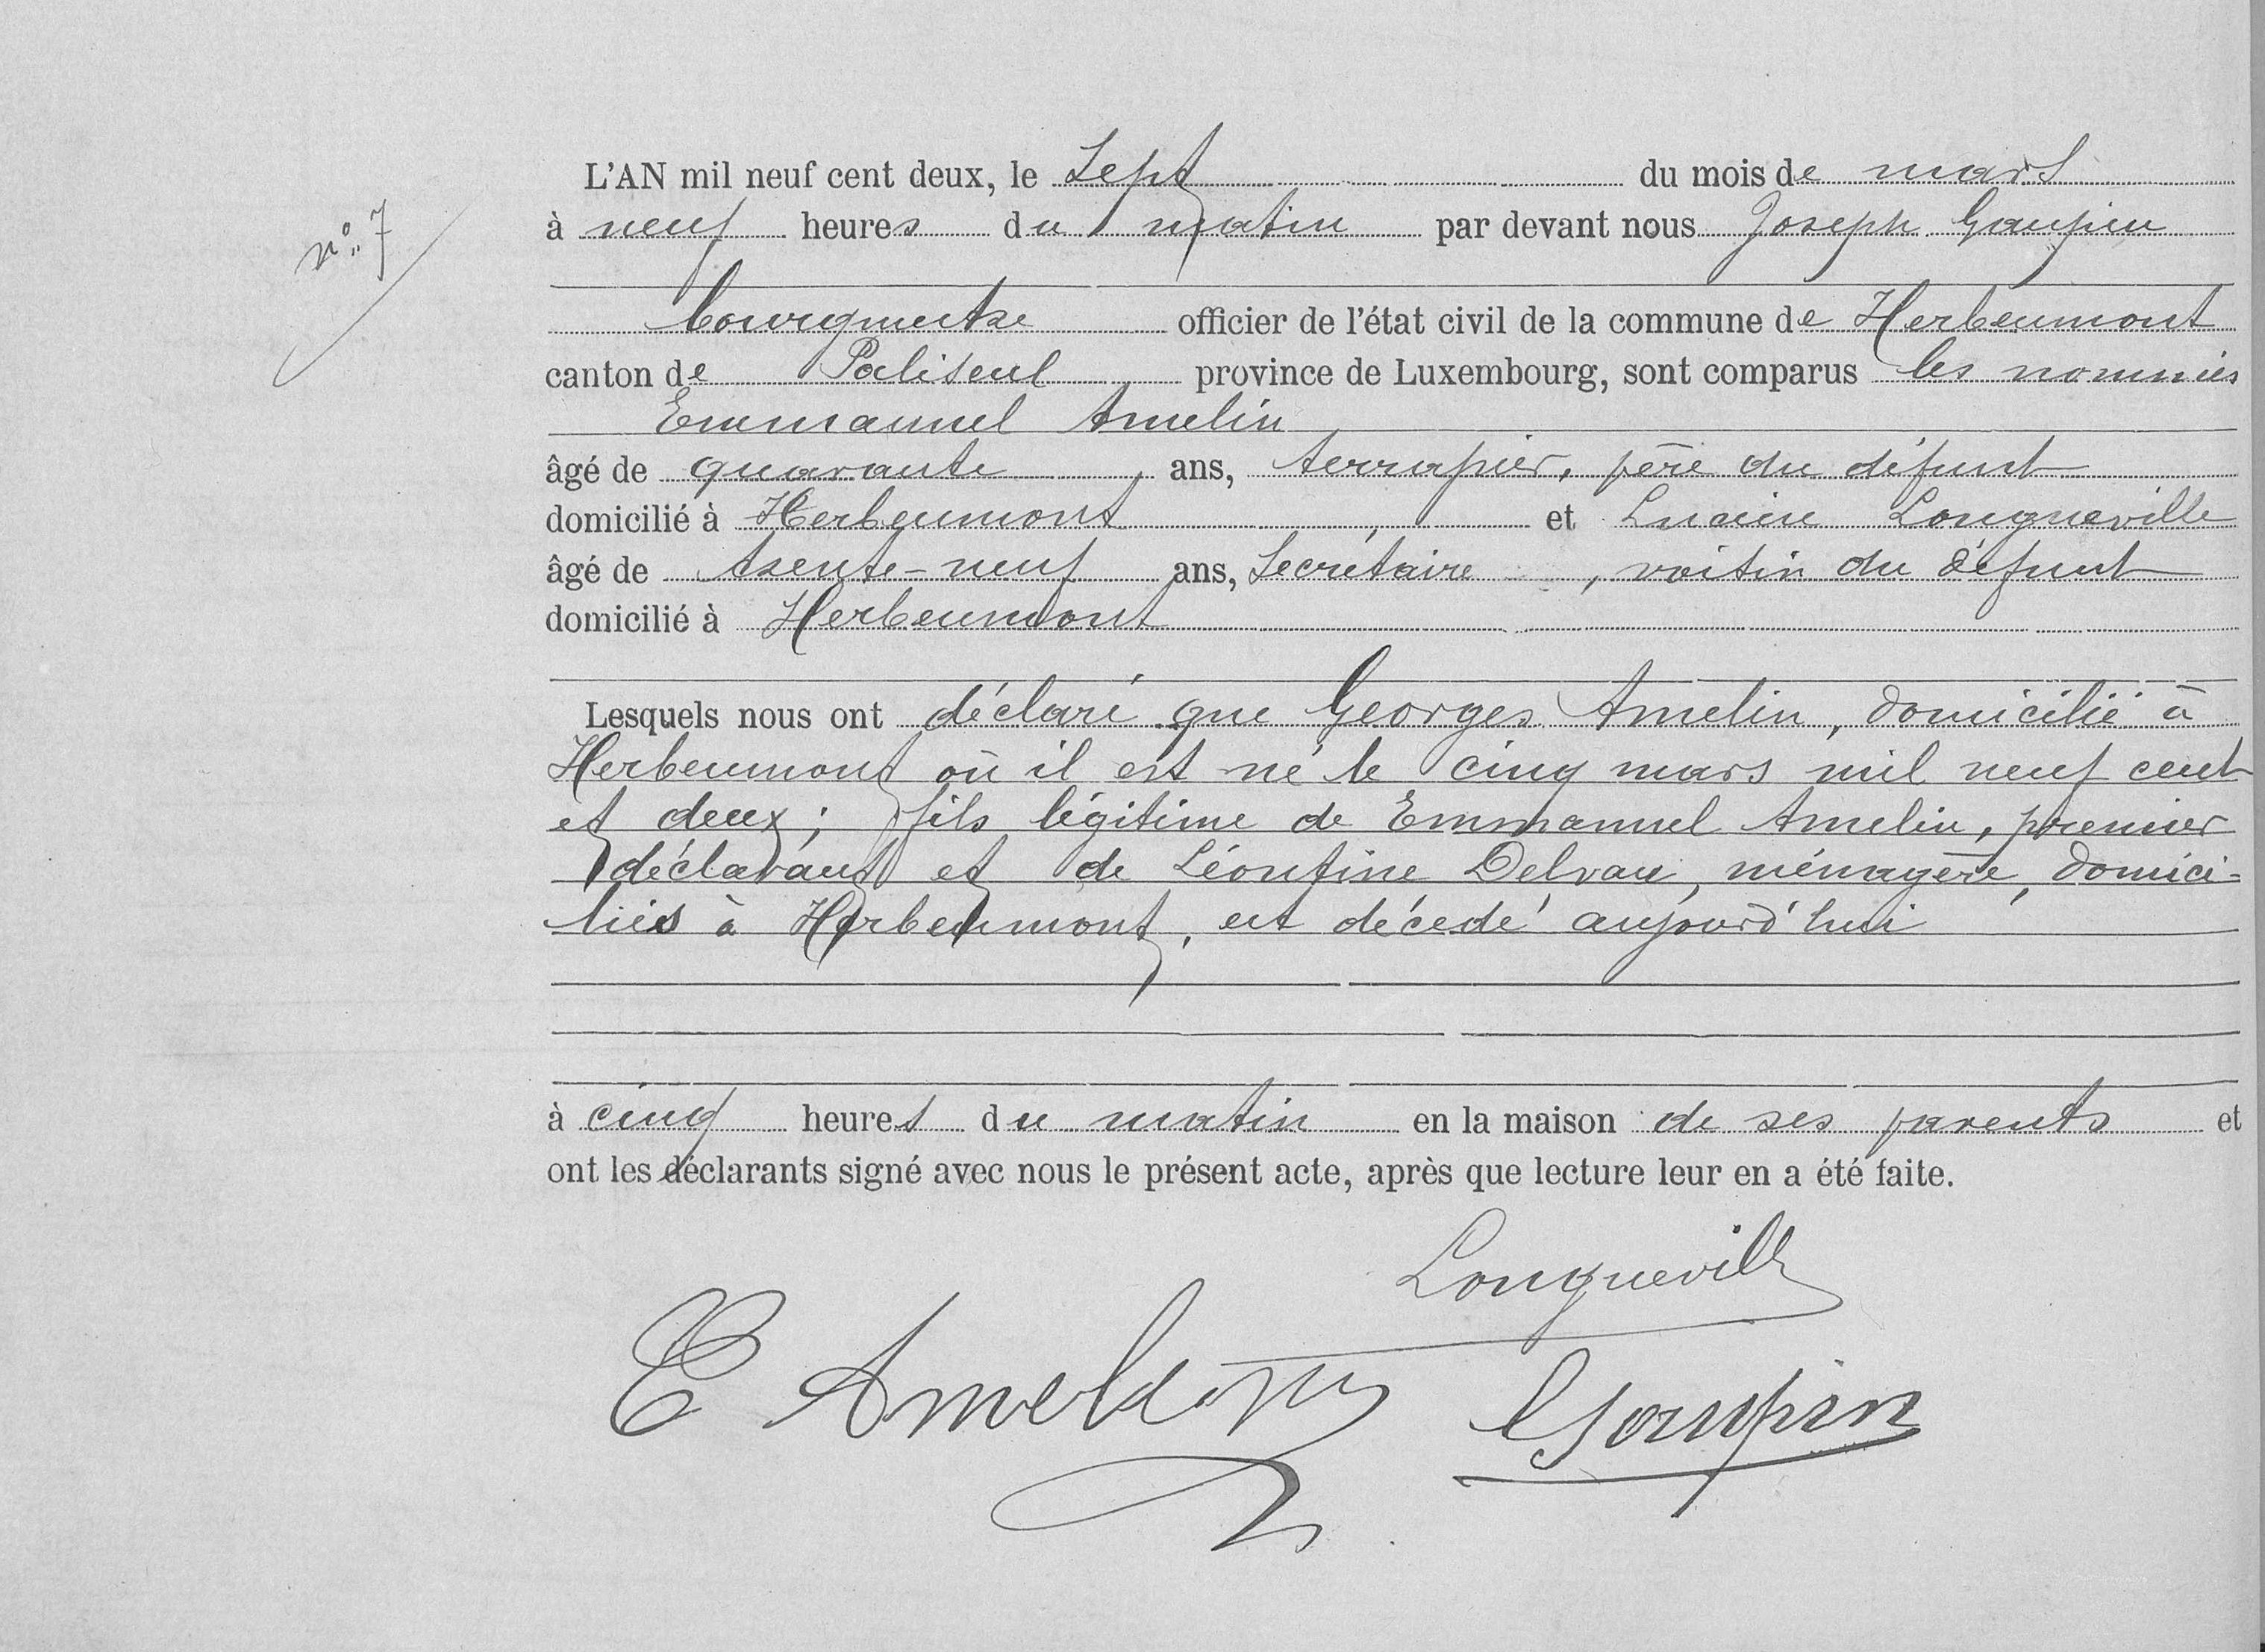 L'AN mil neuf cent deux, le Sept du mois de mars
n°. 7
à neuf heures du matin par devant nous Joseph Gaupin
bourgmestre officier de l'état civil de la commune de Herbeumont
canton de Paliseul province de Luxembourg, sont comparus les nommés
Emmanuel Amelin
âgé de quarante ans, terrassier, père du défunt
domicilié à Herbeumont et Lucien Longueville
âgé de trente-neuf ans, Secrétaire, voisin du défunt
domicilié à Herbeumont
Lesquels nous ont déclaré que Georges Amelin, domicilié à
Herbeumont où il est né le cinq mars mil neuf cent
et deux; fils légitime de Emmanuel Amelin, premier
déclarant et de Léontine Delvau, ménagère, domici-
liés à Herbeumont, est décédé aujourd'hui
à cinq heures du matin en la maison de ses parents et
ont les déclarants signé avec nous le présent acte, après que lecture leur en a été faite.
Longueville
E Amelin
Gaupin